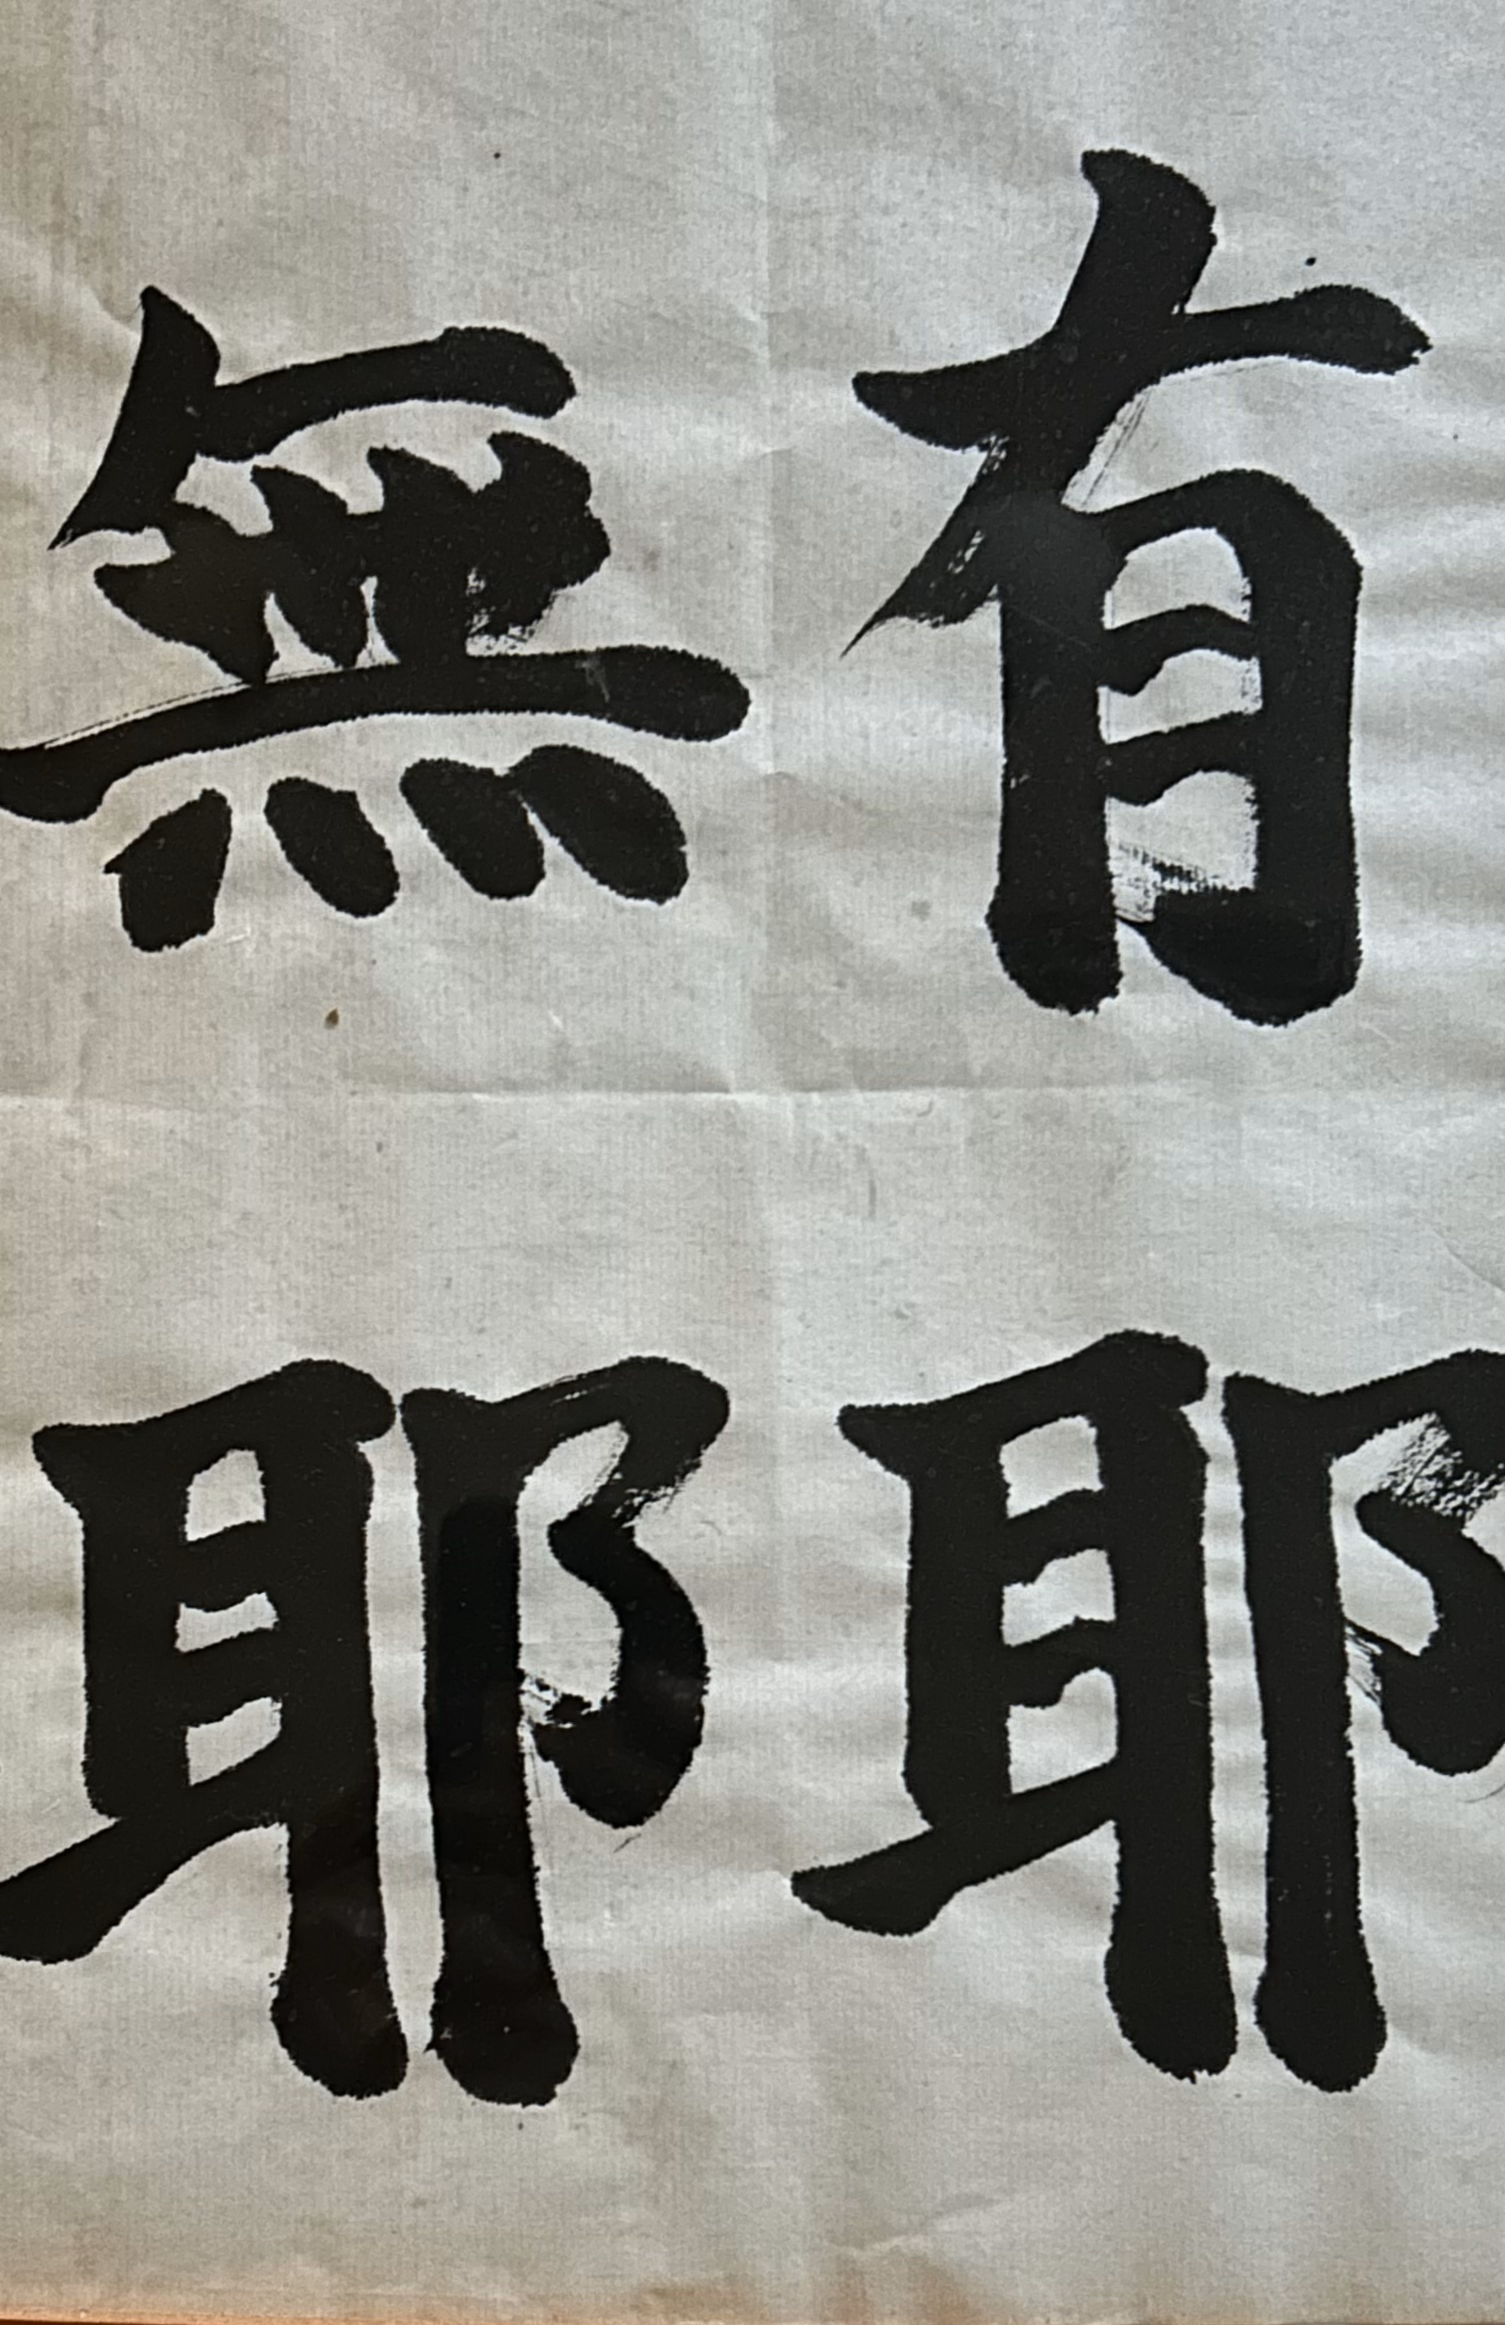 有耶
無耶